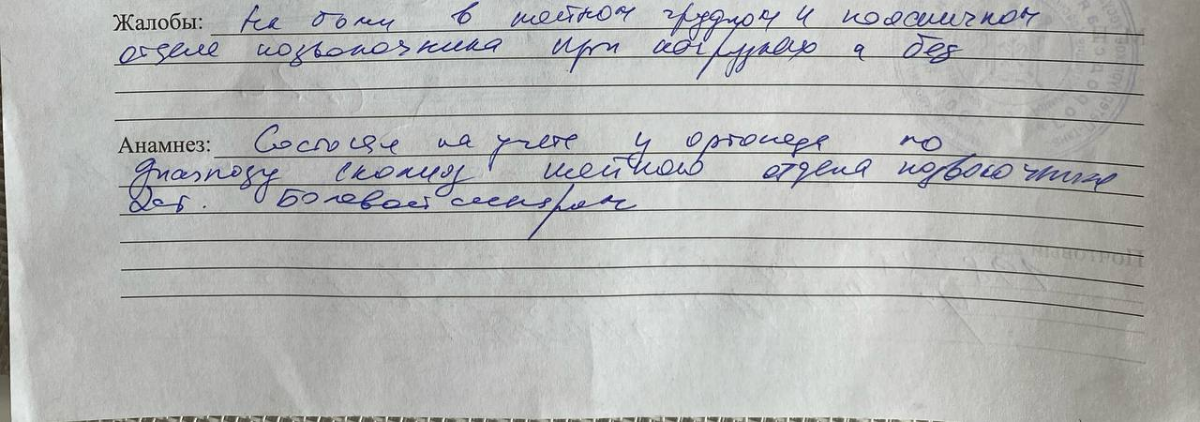 Жалобы: На боли в шейном грудном и поясничном
отделе позвоночника при нагрузках и без
Анамнез: Состоит на учете у ортопеда по
диагнозу сколиоз шейного отдела позвоночника
2 ст. Болевой синдром